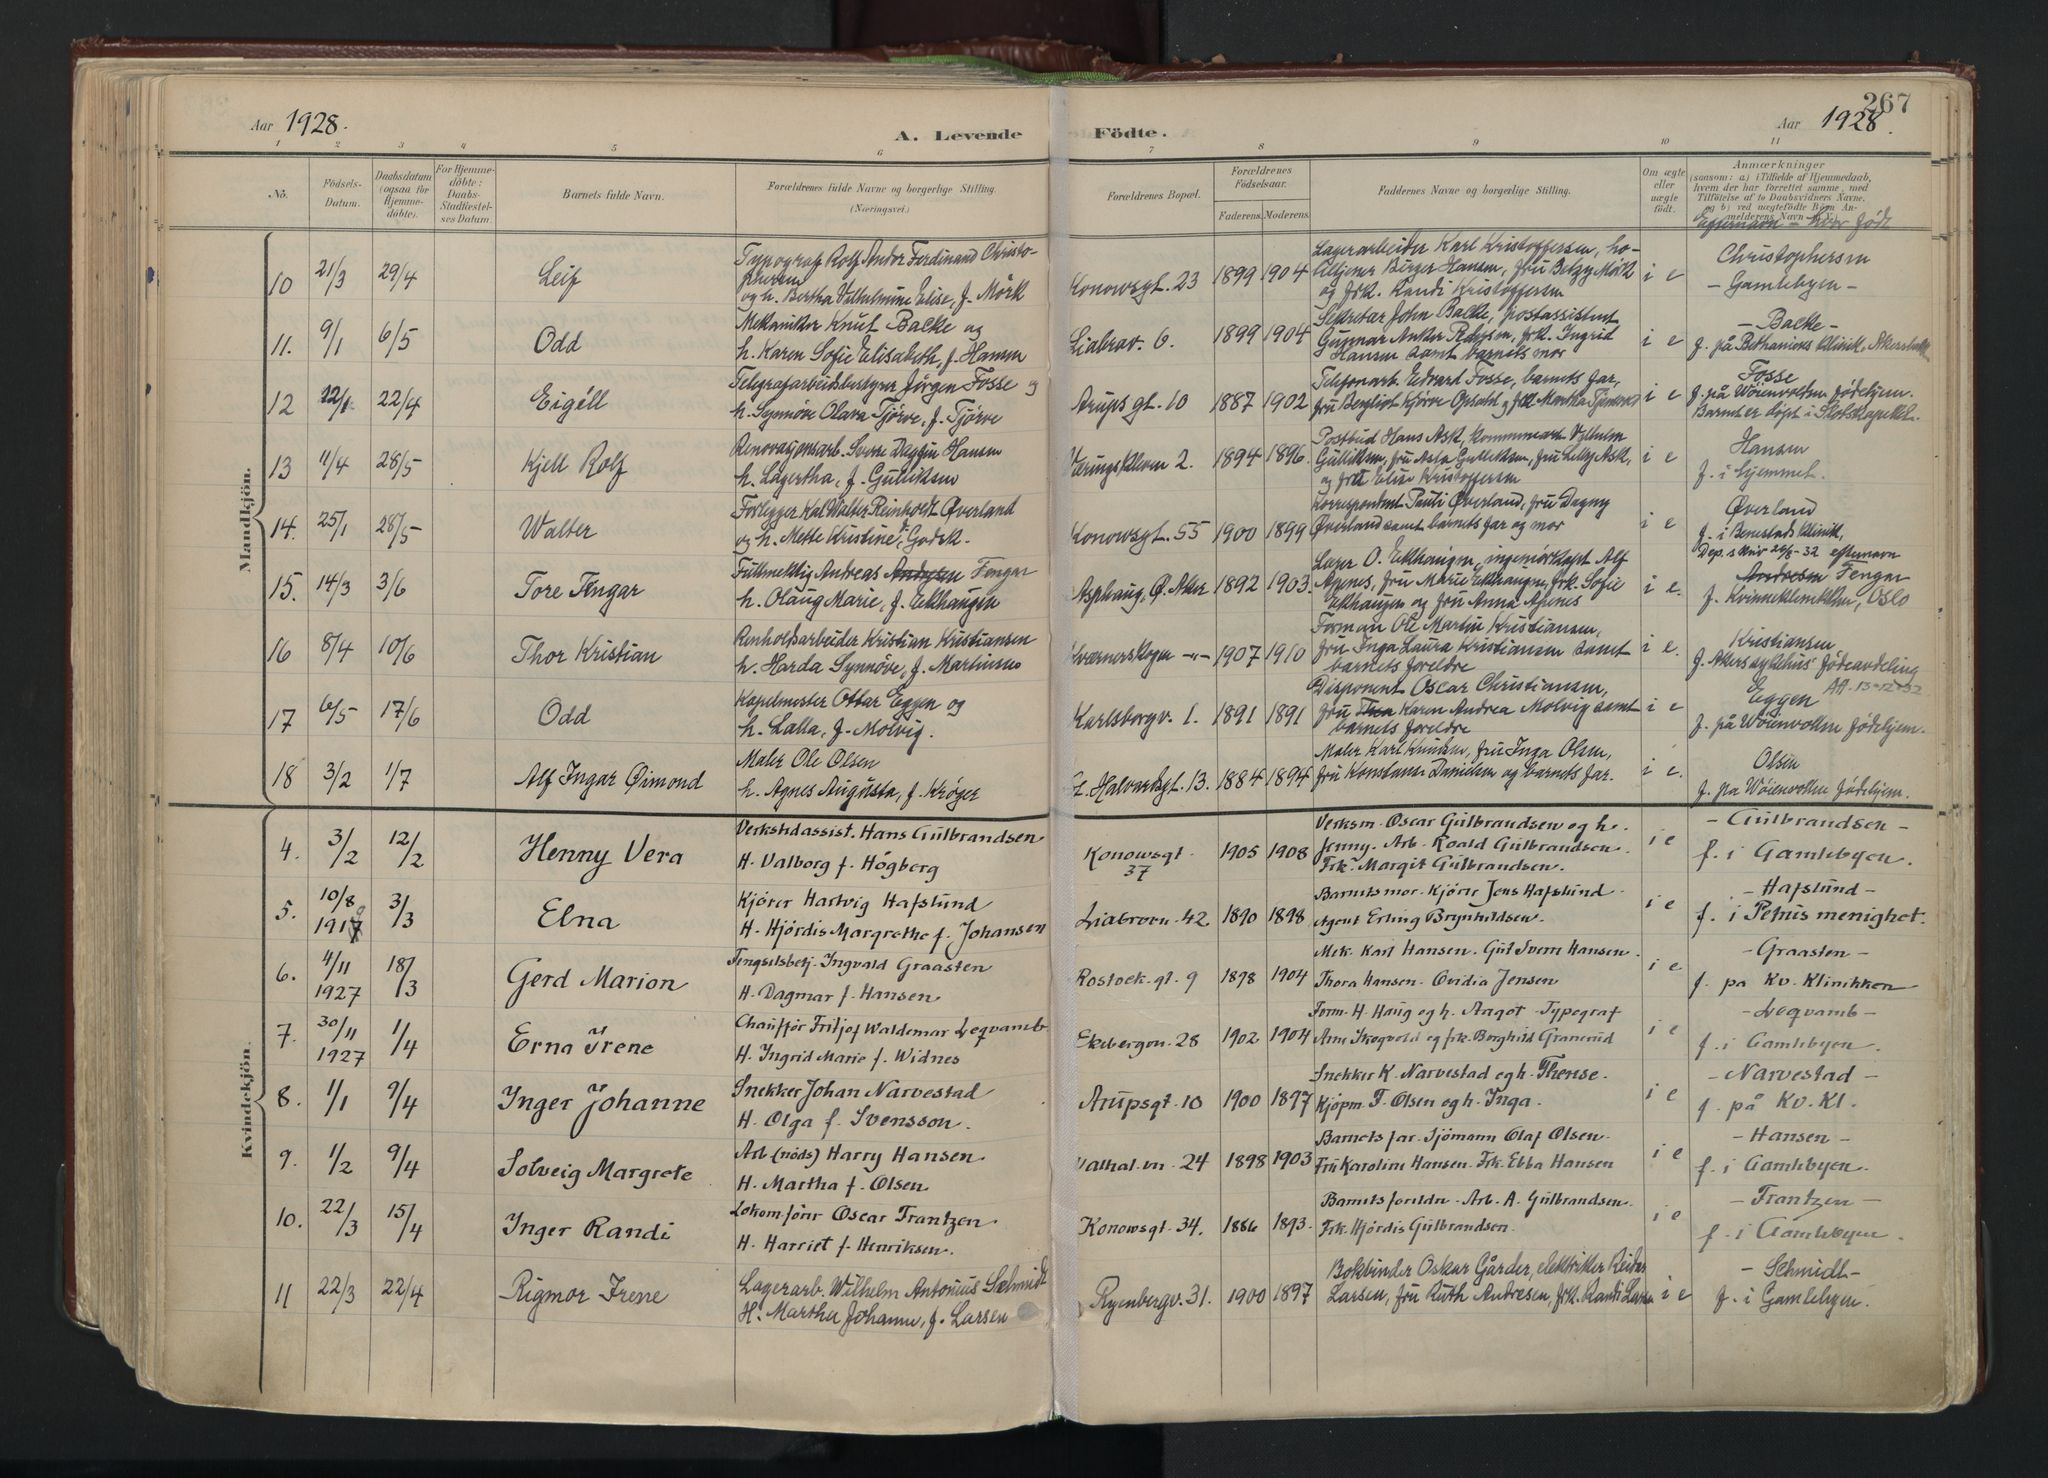 267
Aar 1928.
A. Levende Födte.
Aar 1928.
1 2 3 4 5 6 7 8 9 10 11
No.
Födsels-
Datum.
Daabsdatum
(ogsaa for
Hjemme-
døbte).
For Hjemme-
døbte:
Daabs-
Stadfæstel-
ses Datum.
Barnets fulde Navn.
Forældrenes fulde Navne og borgerlige Stilling.
(Næringsvei.)
Forældrenes Bopæl.
Forældrenes
Födselsaar.
Faderens. Moderens.
Faddernes Navne og borgerlige Stilling.
Om ægte
eller
uægte
født.
Anmærkninger
(saasom: a) i Tilfælde af Hjemmedaab,
hvem der har forrettet samme, med
Tilföielse af to Daabsvidners Navne,
og b) ved uægtefödte Börn An-
melderens Navn
Efternavn - hvor født
Mandkjön.
10 21/3 29/4 Leif
Typograf Rolf Andor Ferdinand Christo-
phersen
og h. Bertha Vilhelmine Elise, f. Mörk
Konowsgt. 23 1899 1904
Lagerarbeider Karl Kristoffersen, ho-
teltjener Birger Hansen, fru Betzy Mörk
og frk. Randi Kristoffersen
i e
Christophersen
- Gamlebyen -
11. 9/1 6/5 Odd
Mekaniker Knut Backe og
h. Karen Sofie Elisabeth, f. Hansen
Liabrov. 6. 1899 1904
Sekretær John Backe, postassistent
Gunnar Anker Pedersen, frk. Ingrid
Hansen samt barnets mor
i e
- Backe -
f. på Bethaniens klinik,
12 12/1 22/4 Eigill
Telegrafarbeidsbestyrer Jörgen Fosse og
h. Synnöve Olava Tjörve, f. Tjörve
Arups gt. 10 1887 1902
Telefonarb. Edvart Fosse, barnets far,
fru Bergliot Opdahl og frk. Martha
i e
Fosse
f. på Wöienvolden födehjem.
Barnet er döpt i Slotskapellet.
13 11/4 28/5 Kjell Rolf
Renovasjonsarb. Sverre Dagfin Hansen
h. Lagertha, f. Gulliksen
2. 1894 1896
Postbud Hans Ask, Vilhelm
Gulliksen, fru Asta Gulliksen, fru Lilly Ask,
og frk Elise Kristoffersen
i e
Hansen
f. i hjemmet.
14. 25/1 28/5 Walter
Forlegger Kal Walter Reinholdt Øverland
og h. Mette Kristine, f. Godsk.
Konowsgt. 55 1900 1899
Korrespondent Pauli Øverland, fru Dagny
Øverland samt barnets far og mor
i e
Øverland
f. i Benestads Klinik,
15. 14/3 3/6 Tore Fengar
Fullmektig Andreas Andresen Fengar
h. Olaug Marie, f. Ekhaugen
Asphaug, Ø. Aker 1892 1903.
Lager O. Ekhaugen, ingeniörkapt Alf
Apenes, fru Marie Ekhaugen, frk. Sofie
Ekhaugen og fru Anna Apenes
i e.
Dep. skriv 24/6-32 efternavn
Andresen Fengar
f. Kvinneklinikken, Oslo
16 8/4 10/6 Thor Kristian
Renholdsarbeider Kristian Kristiansen
h. Harda Synnöve, f. Martinsen
Kværnerskogen -"- 1907 1910
Formann Ole Martin Kristiansen,
fru Inga Laura Kristiansen samt
barnets foreldre
i e.
Kristiansen
f. Akers sykehus' födeavdeling
17 6/5 17/6 Odd
Kapelmester Ottar Eggen og
h. Lalla, f. Molvig.
Karlsborgv. 1. 1891 1891
Disponent Oscar Christiansen,
fru Karen Andrea Molvig samt
barnets foreldre
i e
Eggen Att. 13-12-52
f. på Wöienvollen födehjem.
18 3/2 1/7 Alf Ingar Øimond
Maler Ole Olsen
h. Agnes Augusta, f. Kröger
St. Halvardsgt. 13. 1884 1894
Maler Karl Knudsen, fru Inga Olsen,
fru Konstanse Danielsen og barnets far.
i e.
Olsen
f. på Wöienvollen födehjem.
Kvindekjön.
4. 3/2 12/2 Henny Vera
Verkstedassist. Hans Gulbrandsen
H. Valborg f. Högberg
Konowsgt.
37
1905 1908
Verksm. Oscar Gulbrandsen og h.
Jenny. Arb. Roald Gulbrandsen.
Frk. Margit Gulbrandsen.
i e
- Gulbrandsen -
f. i Gamlebyen.
5. 10/8 1917 3/3 Elna
Kjörer Hartvig Hafslund
H. Hjördis Margrethe f. Johansen
Liabroen 42 1890 1898
Barnets mor. Kjörer Jens Hafslund.
Agent Erling Brynhildsen.
i e
- Hafslund -
f. i Petrus menighet.
6. 4/11 1927 18/3 Gerd Marion
Fengselsbetj. Ingvald Graasten
H. Dagmar f. Hansen
Rostock. gt. 9 1898 1904
Mek. Karl Hansen. Gut Sverre Hansen.
Thora Hansen. Ovidia Jensen
i e
- Graasten -
f. på Kv. Klinikken
7. 30/11 1927 1/4 Erna Irene
Chauffør Fritjof Waldemar Leqvamb
H. Ingrid Marie f. Widnes
Ekebergvn. 28 1902 1904
Form. H. Haug og h. Aagot. Typograf
Arne Skogvold og frk. Borghild Granerud
i e
- Leqvamb -
f. i Gamlebyen.
8. 1/1 9/4 Inger Johanne
Snekker Johan Narvestad
H. Olga f. Svensson.
Arupsgt. 10 1900 1897
Snekker K. Narvestad og h. Therese.
Kjöpm. F. Olsen og h. Inga.
i e
- Narvestad -
f. på Kv. Kl.
9. 1/2 9/4 Solveig Margrete
Arb (nöds) Harry Hansen
H. Martha f. Olsen
Valhal. vn. 24 1898 1903
Barnets far. Sjömann Olaf Olsen.
Fru Karoline Hansen. Frk. Ebba Hansen
i e
- Hansen -
f. i Gamlebyen.
10. 22/3 15/4 Inger Randi
Lokom. förer Oscar Frantzen
H. Harriet f. Henriksen.
Konowsgt. 34. 1886 1893.
Barnets foreldre. Arb. A. Gulbrandsen.
Frk. Hjördis Gulbrandsen.
i e
- Frantzen -
f. i Gamlebyen.
11 22/3 22/4 Rigmor Irene
Lagerarb. Wilhelm Antonius Schmidt
H. Martha Johanne, f. Larsen
Ryenbergv. 31. 1900 1897
Bokbinder Oskar Gårder, elektriker Reidar
Larsen, fru Ruth Andresen, frk. Randi Larsen
i e
- Schmidt -
f. i Gamlebyen.